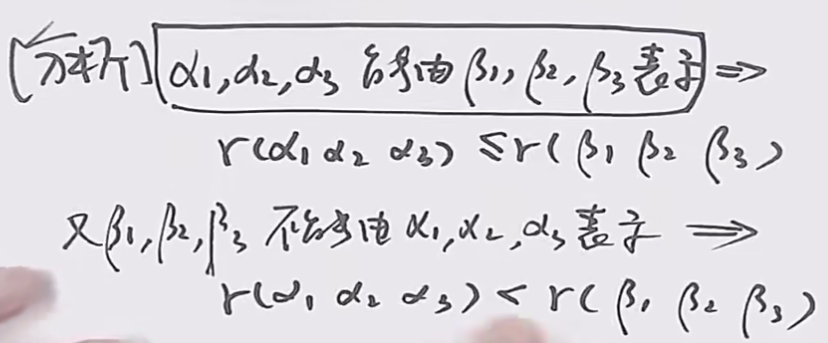 [分析] α1,α2,α3 能由 β1,β2,β3 表示 ⇒
r(α1 α2 α3) ≤ r(β1 β2 β3)
又β1,β2,β3 不能由 α1,α2,α3 表示 ⇒
r(α1 α2 α3) < r(β1 β2 β3)